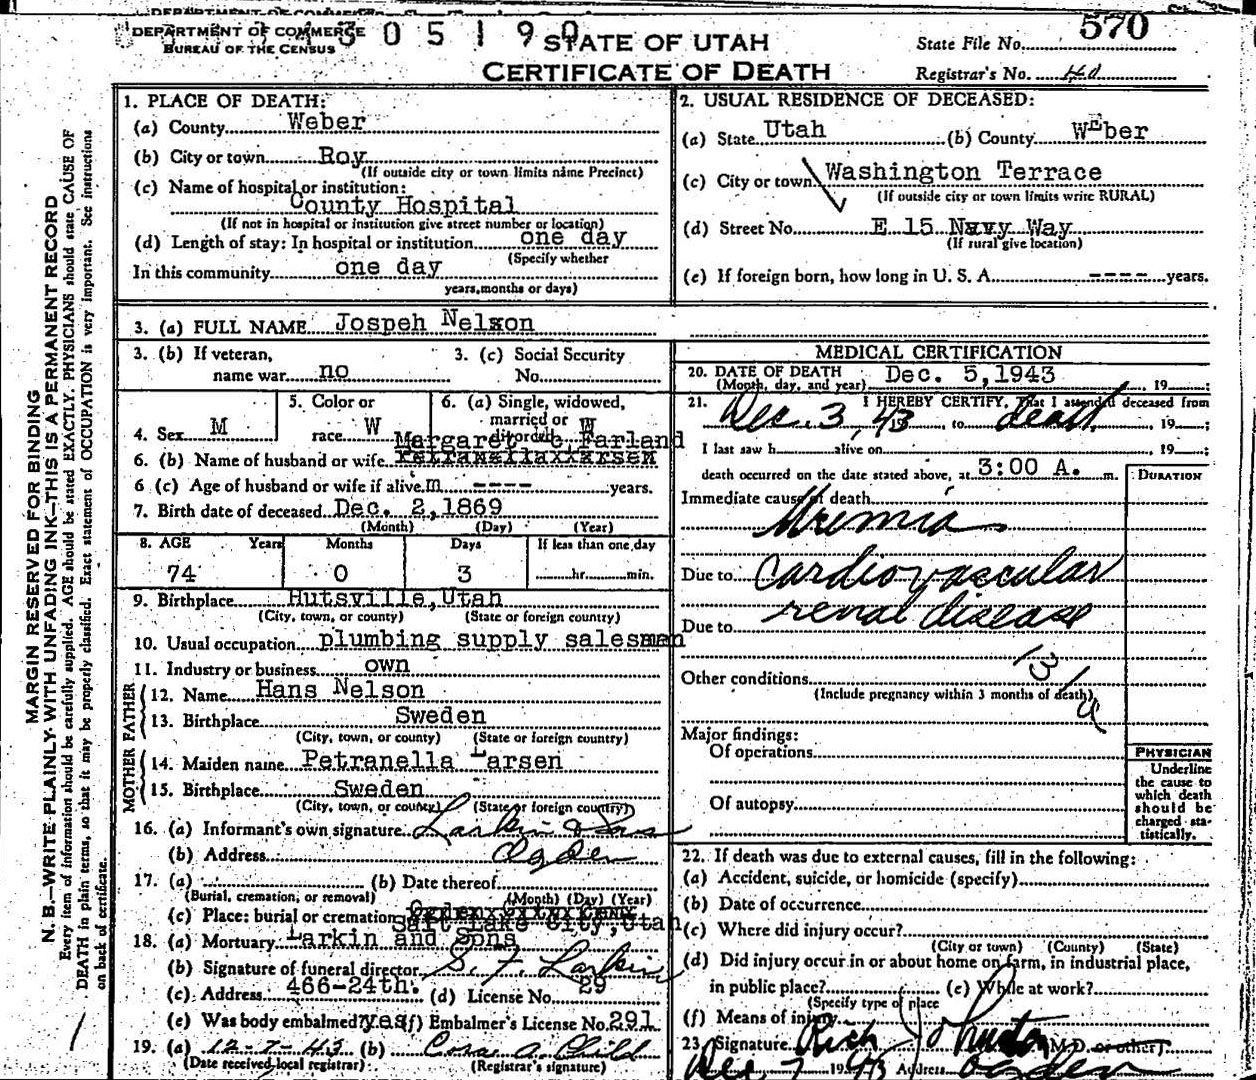 DEPARTMENT OF COMMERCE
BUREAU OF THE CENSUS
305190
STATE OF UTAH
CERTIFICATE OF DEATH
570
State File No.
Registrar's No.
MARGIN RESERVED FOR BINDING
N. B.—WRITE PLAINLY WITH UNFADING INK—THIS IS A PERMANENT RECORD
Every item of information should be carefully supplied. AGE should be stated EXACTLY. PHYSICIANS should state CAUSE OF
DEATH in plain terms, so that it may be properly classified. Exact statement of OCCUPATION is very important. See instructions
on back of certificate.
1. PLACE OF DEATH:
(a) County Weber
(b) City or town Roy
(If outside city or town limits name Precinct)
(c) Name of hospital or institution:
County Hospital
(If not in hospital or institution give street number or location)
(d) Length of stay: In hospital or institution one day
(Specify whether
In this community one day
years, months or days)
2. USUAL RESIDENCE OF DECEASED:
(a) State Utah (b) County Weber
(c) City or town Washington Terrace
(If outside city or town limits write RURAL)
(d) Street No. E 15 Navy Way
(If rural give location)
(e) If foreign born, how long in U. S. A. ---- years.
3. (a) FULL NAME Jospeh Nelson
3. (b) If veteran, name war no
3. (c) Social Security No.
4. Sex M
5. Color or race W
6. (a) Single, widowed, married or divorced W
Margaret C. Farland
6. (b) Name of husband or wife
6 (c) Age of husband or wife if alive ---- years.
7. Birth date of deceased Dec. 2, 1869
(Month) (Day) (Year)
8. AGE Years Months Days If less than one day
74 0 3 hr. min.
9. Birthplace Hutsville, Utah
(City, town, or county) (State or foreign country)
10. Usual occupation plumbing supply salesman
11. Industry or business own
FATHER
12. Name Hans Nelson
13. Birthplace Sweden
(City, town, or county) (State or foreign country)
MOTHER
14. Maiden name Petranella Larsen
15. Birthplace Sweden
(City, town, or county) (State or foreign country)
16. (a) Informant's own signature Larkin & Sons
(b) Address Ogden
17. (a) (b) Date thereof
(Burial, cremation, or removal) (Month) (Day) (Year)
(c) Place: burial or cremation
Salt Lake City, Utah
18. (a) Mortuary Larkin and Sons
(b) Signature of funeral director S. F. Larkin
(c) Address 466-24th. (d) License No. 29
(e) Was body embalmed? yes (f) Embalmer's License No. 291
19. (a) 12-7-43 (b) Cora A. Child
(Date received local registrar) (Registrar's signature)
MEDICAL CERTIFICATION
20. DATE OF DEATH
(Month, day, and year) Dec. 5, 1943, 19
21. I HEREBY CERTIFY, That I attended deceased from
Dec. 3, 43, to death, 19
I last saw h alive on, 19
death occurred on the date stated above, at 3:00 A. m.
DURATION
Immediate cause of death
Uremia
Due to Cardiovascular
renal disease
Due to
Other conditions
(Include pregnancy within 3 months of death)
Major findings:
Of operations
Of autopsy
PHYSICIAN
Underline
the cause to
which death
should be
charged sta-
tistically.
22. If death was due to external causes, fill in the following:
(a) Accident, suicide, or homicide (specify)
(b) Date of occurrence
(c) Where did injury occur?
(City or town) (County) (State)
(d) Did injury occur in or about home on farm, in industrial place,
in public place? (e) While at work?
(Specify type of place
(f) Means of injury
23. Signature Rich M.D. or other)
Dec 7 1943 Address Ogden